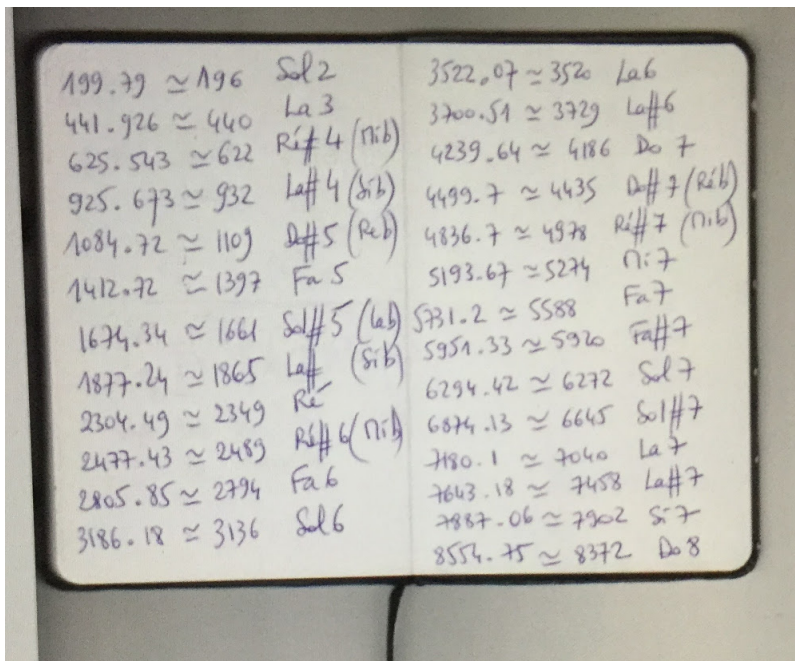 199.79 ≃ 196 Sol 2
441.926 ≃ 440 La 3
625.543 ≃ 622 Ré# 4 (Mib)
925.673 ≃ 932 La# 4 (Sib)
1084.72 ≃ 1109 Do# 5 (Reb)
1412.72 ≃ 1397 Fa 5
1674.34 ≃ 1661 Sol# 5 (Lab)
1877.24 ≃ 1865 La# (Sib)
2304.49 ≃ 2349 Ré
2477.43 ≃ 2489 Ré# 6 (Mib)
2805.85 ≃ 2794 Fa 6
3186.18 ≃ 3136 Sol 6
3522.07 ≃ 3520 La 6
3700.51 ≃ 3729 La# 6
4239.64 ≃ 4186 Do 7
4499.7 ≃ 4435 Do# 7 (Réb)
4836.7 ≃ 4978 Ré# 7 (Mib)
5193.67 ≃ 5274 Mi 7
5731.2 ≃ 5588 Fa 7
5951.33 ≃ 5920 Fa# 7
6294.42 ≃ 6272 Sol 7
6874.13 ≃ 6645 Sol# 7
7180.1 ≃ 7040 La 7
7643.18 ≃ 7458 La# 7
7887.06 ≃ 7902 Si 7
8554.75 ≃ 8372 Do 8